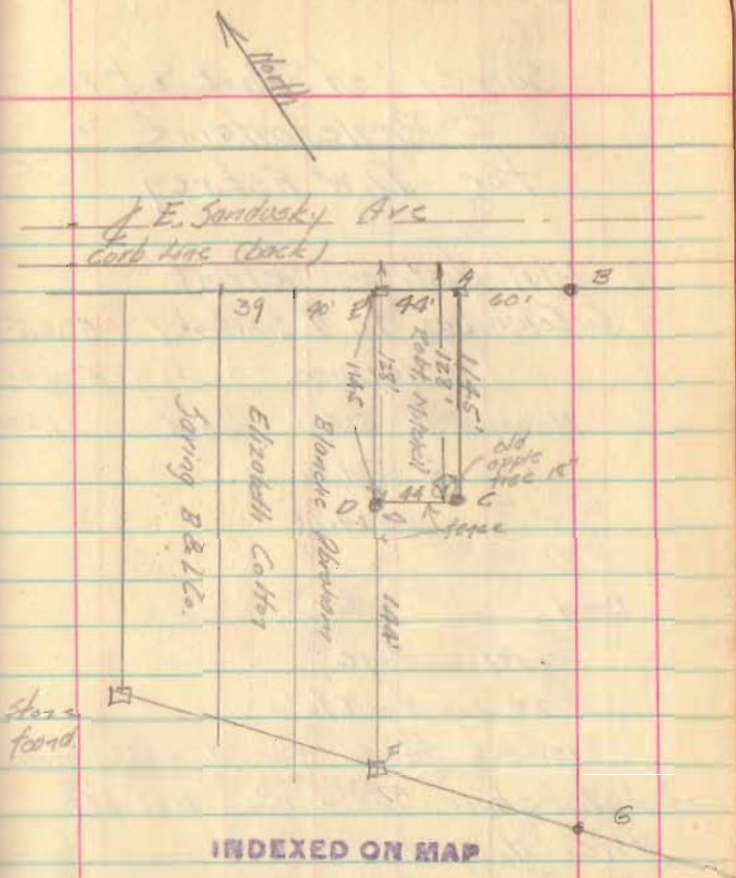 North
⅊ E. Sandusky Ave
Curb Line (back)
A
B
39
40'
E
44'
60'
114.5
128'
Robt. Mitchell
128'
114.5'
old
apple
tree 18"
D
44
C
fence
Saving B & L Co.
Elizabeth Cotton
Blanche Abraham
144'
Stone
found
F
G
INDEXED ON MAP